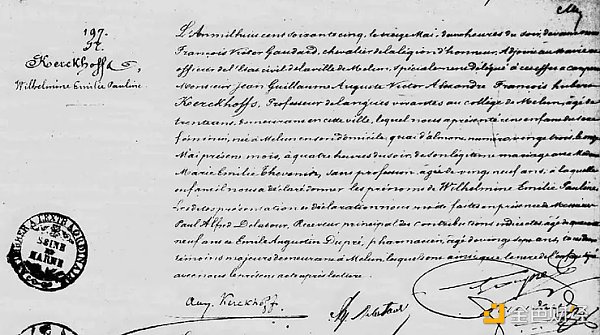 197.
57.
Kerckhoffs,
Wilhelmine Emilie Pauline.
L'An mil huit cent soixante cinq, le treize Mai, deux heures du soir, devant nous
François Victor Gaudard, chevalier de la légion d'honneur, Adjoint au Maire et
officier de l'Etat civil de la ville de Melun, spécialement délégué à cet effet, a comparu
Monsieur Jean Guillaume Auguste Victor Alexandre François hubert
Kerckhoffs, Professeur de langues vivantes au collège de Melun, âgé de
trente ans, demeurant en cette ville, lequel nous a présenté un enfant du sexe
féminin, né à Melun en son domicile, quai d'almont, numéro vingt trois, le
Mai présent mois, à quatre heures du soir, de son légitime mariage avec
Marie Emilie, sans profession, âgée de vingt neuf ans, à laquelle
enfant il nous a déclaré donner les prénoms de Wilhelmine Emilie Pauline.
Lesdites présentation et déclaration nous ont été faites en présence de Messieurs
Paul Alfred Delatour, Receveur principal des contributions indirectes, âgé de
neuf ans et Emile Augustin Dupré, pharmacien, âgé de vingt sept ans,
témoins majeurs demeurant à Melun, lesquels
avec nous le présent acte après lecture.
Aug. Kerckhoffs.
TIMBRER A L'EXTRAORDINAIRE
SEINE
ET
MARNE
金色财经